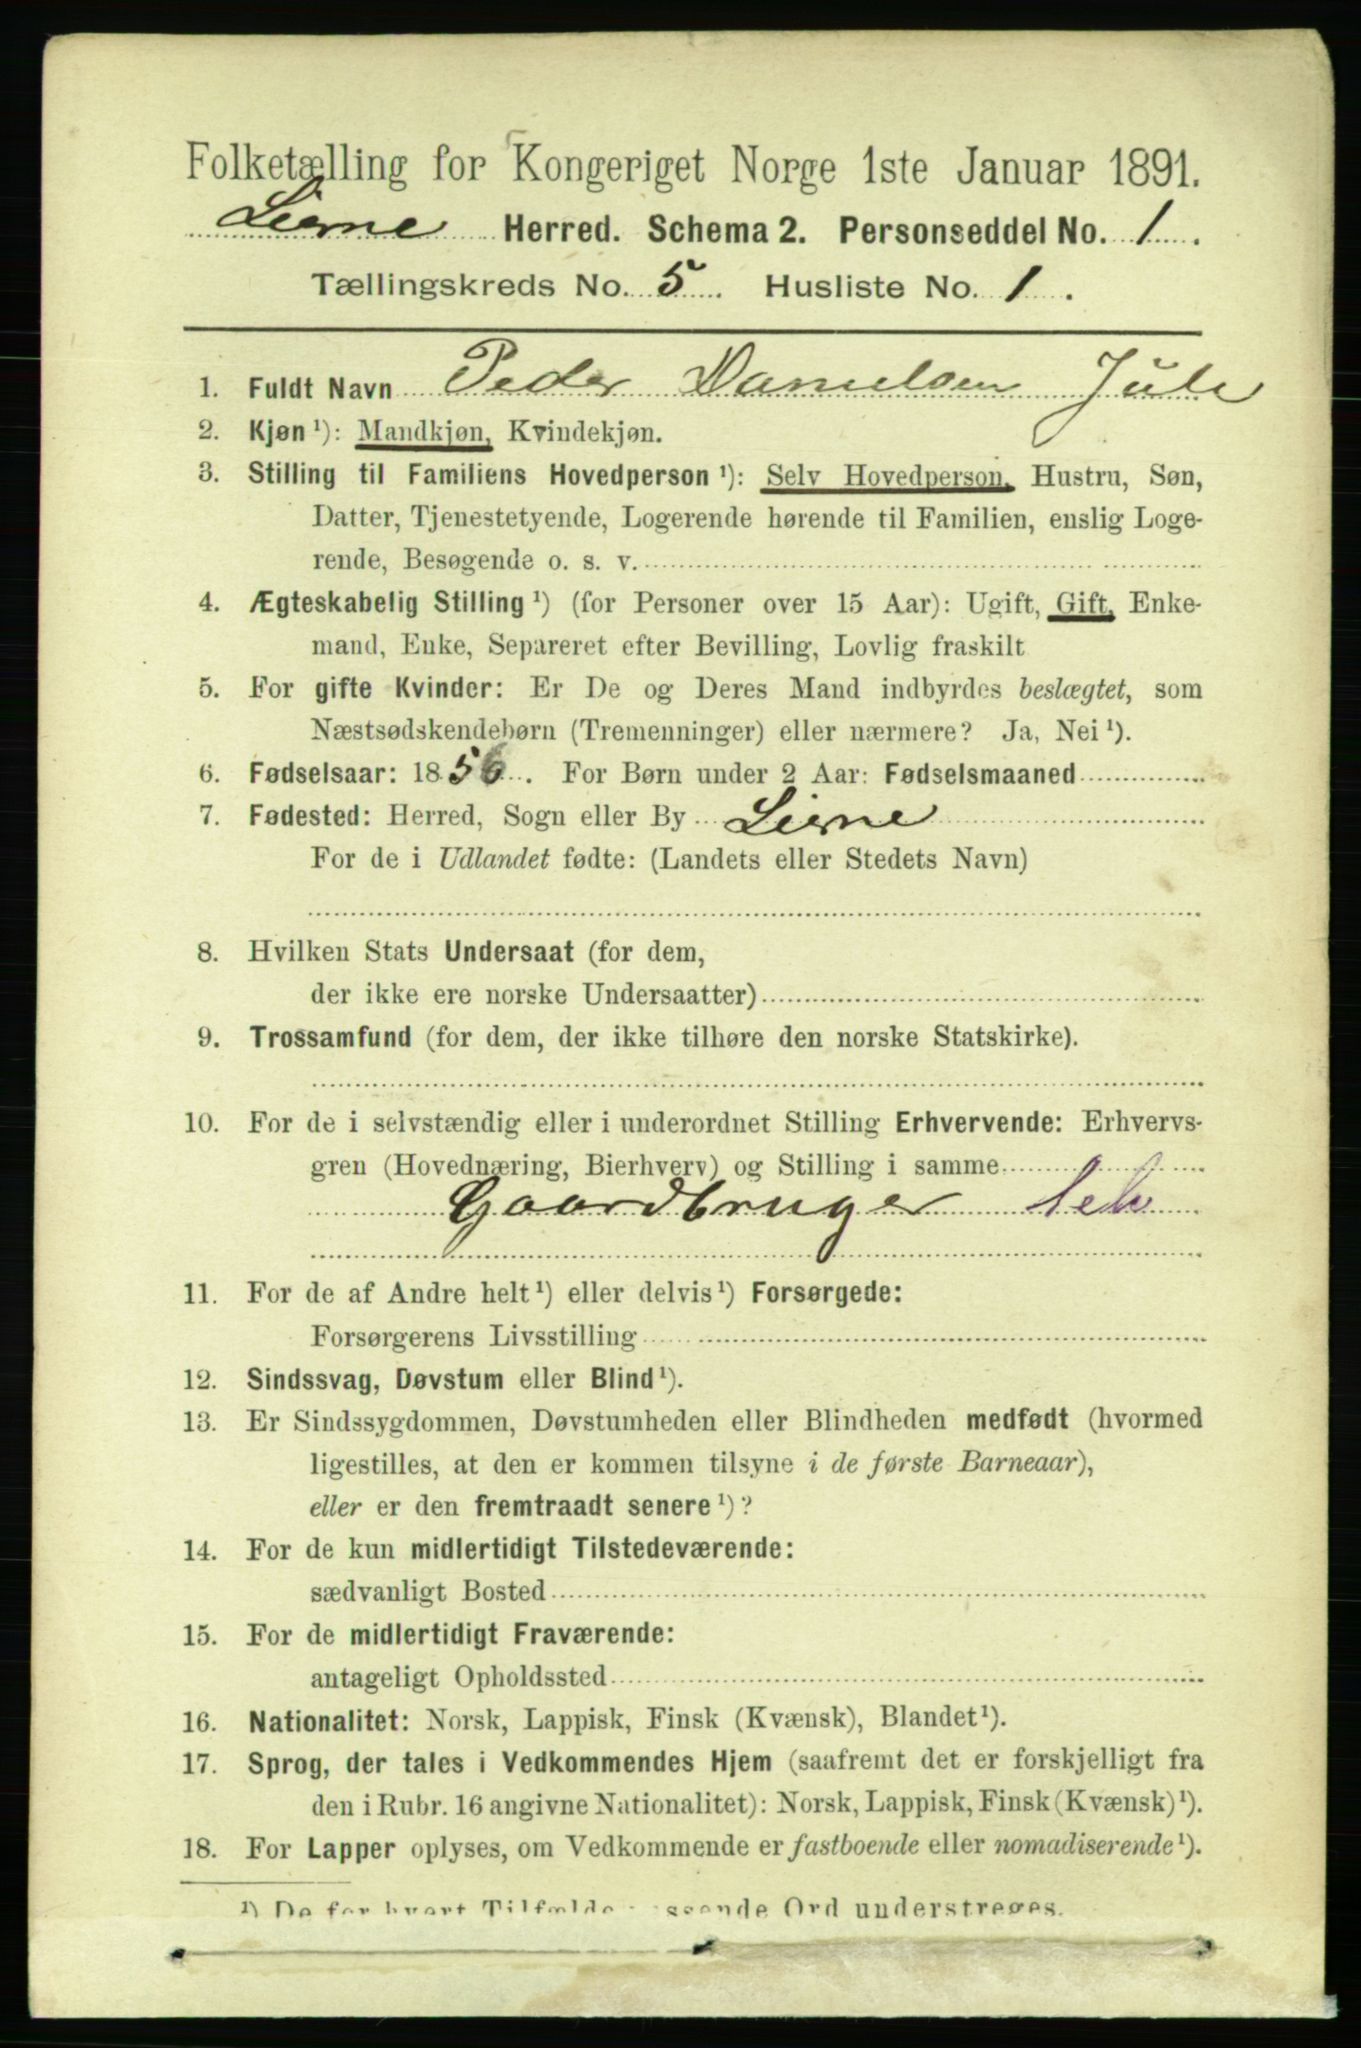 Folketælling for Kongeriget Norge 1ste Januar 1891.
Lierne Herred. Schema 2. Personseddel No. 1.
Tællingskreds No. 5. Husliste No. 1.
1. Fuldt Navn Peder Danielsen Jule
2. Kjøn ¹): Mandkjøn, Kvindekjøn.
3. Stilling til Familiens Hovedperson ¹): Selv Hovedperson, Hustru, Søn,
Datter, Tjenestetyende, Logerende hørende til Familien, enslig Loge-
rende, Besøgende o. s. v.
4. Ægteskabelig Stilling ¹) (for Personer over 15 Aar): Ugift, Gift, Enke-
mand, Enke, Separeret efter Bevilling, Lovlig fraskilt
5. For gifte Kvinder: Er De og Deres Mand indbyrdes beslægtet, som
Næstsødskendebørn (Tremenninger) eller nærmere? Ja, Nei ¹).
6. Fødselsaar: 1856. For Børn under 2 Aar: Fødselsmaaned
7. Fødested: Herred, Sogn eller By Lierne
For de i Udlandet fødte: (Landets eller Stedets Navn)
8. Hvilken Stats Undersaat (for dem,
der ikke ere norske Undersaatter)
9. Trossamfund (for dem, der ikke tilhøre den norske Statskirke).
10. For de i selvstændig eller i underordnet Stilling Erhvervende: Erhvervs-
gren (Hovednæring, Bierhverv) og Stilling i samme
Gaardbruger selv
11. For de af Andre helt ¹) eller delvis ¹) Forsørgede:
Forsørgerens Livsstilling
12. Sindssvag, Døvstum eller Blind ¹).
13. Er Sindssygdommen, Døvstumheden eller Blindheden medfødt (hvormed
ligestilles, at den er kommen tilsyne i de første Barneaar),
eller er den fremtraadt senere ¹)?
14. For de kun midlertidigt Tilstedeværende:
sædvanligt Bosted
15. For de midlertidigt Fraværende:
antageligt Opholdssted
16. Nationalitet: Norsk, Lappisk, Finsk (Kvænsk), Blandet ¹).
17. Sprog, der tales i Vedkommendes Hjem (saafremt det er forskjelligt fra
den i Rubr. 16 angivne Nationalitet): Norsk, Lappisk, Finsk (Kvænsk) ¹).
18. For Lapper oplyses, om Vedkommende er fastboende eller nomadiserende ¹).
¹) De for hvert Tilfælde passende Ord understreges.